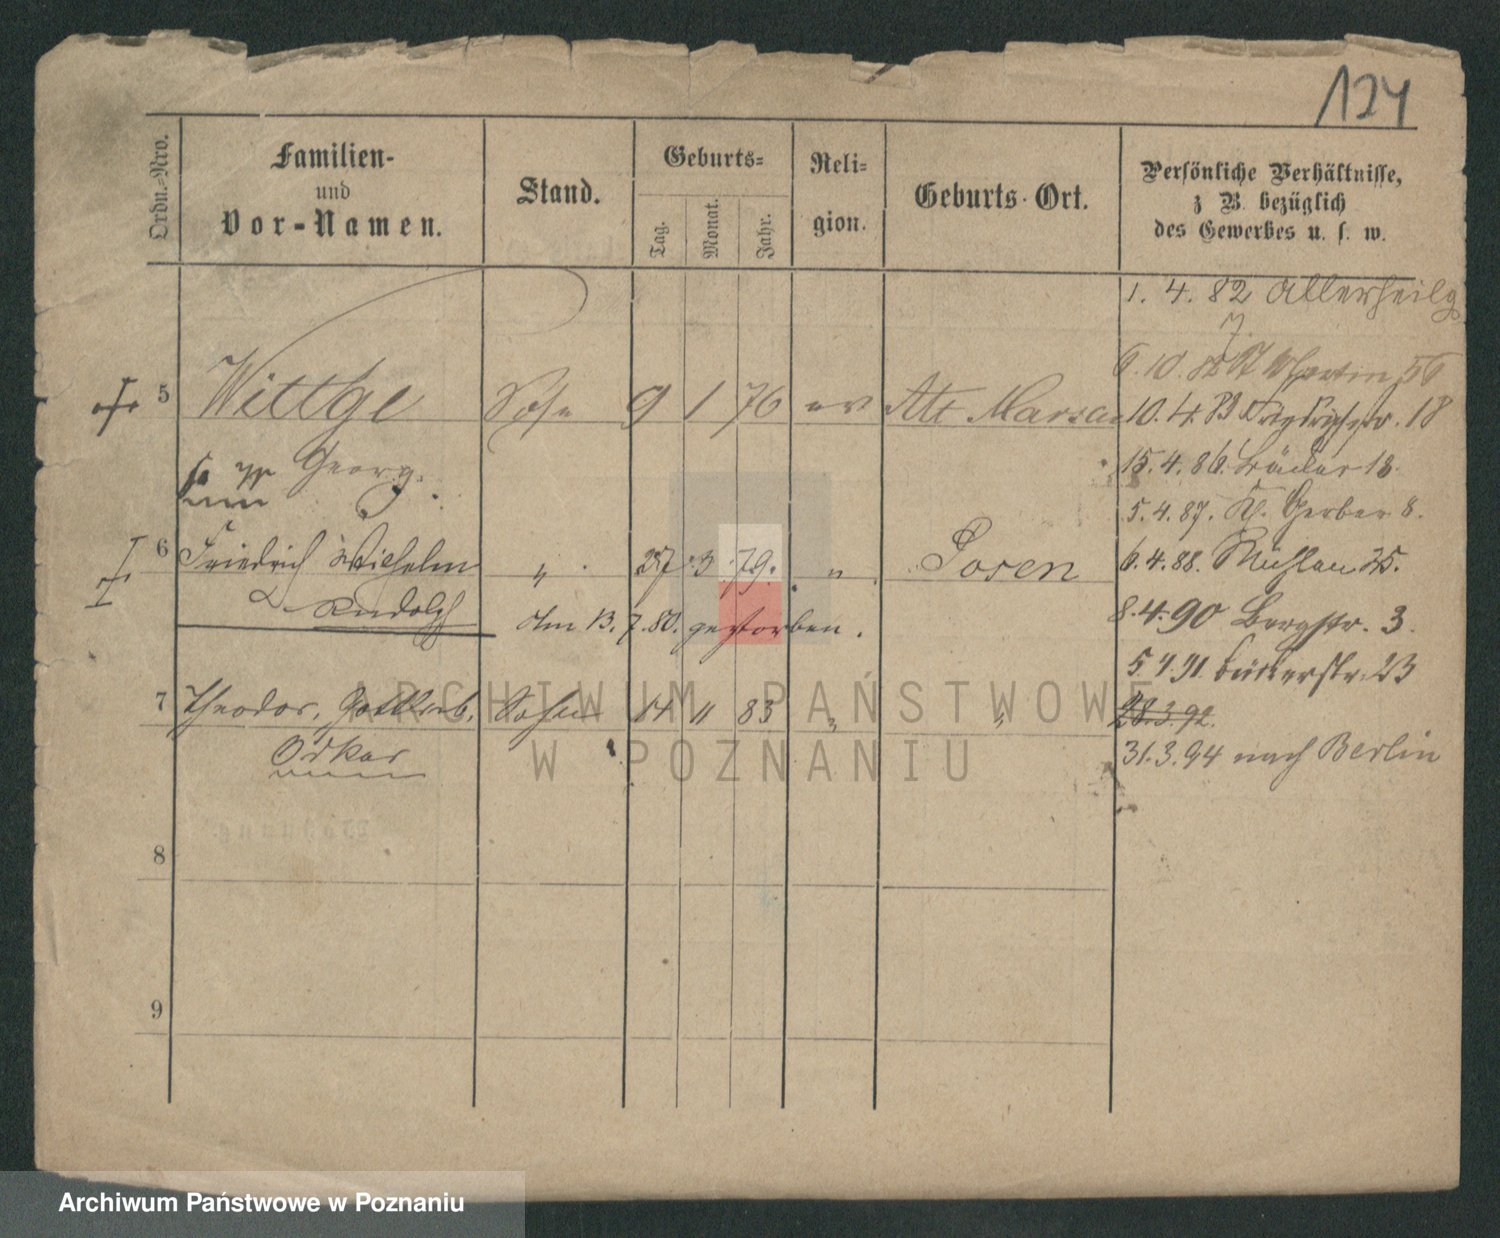 124
Ordn.-Nro.
Familien-
und
Vor-Namen.
Stand.
Geburts-
Tag.
Monat.
Jahr.
Reli-
gion.
Geburts-Ort.
Persönliche Verhältnisse,
z B. bezüglich
des Gewerbes u. s. w.
1. 4. 82 Allerheilg
7.
6. 10. 82 St Martin 56
5 Wittge Sohn 9 1 76 ev Alt
10. 4. 83 18
Georg.
15. 4. 86. Bäcker 18.
5. 4. 87. Kl. Gerber 8.
6 Friedrich Wilhelm " 27 3 79. " Posen
6. 4. 88. Mühlen 25.
Rudolf
Am 13. 7. 80. gestorben.
8. 4. 90 Bergstr. 3.
5 4 91. 23
7 Theodor, Gottlieb, Sohn 14 11 83 " "
28.3.92.
Oskar
31. 3. 94 nach Berlin
8
9
ARCHIWUM PAŃSTWOWE
W POZNANIU
Archiwum Państwowe w Poznaniu